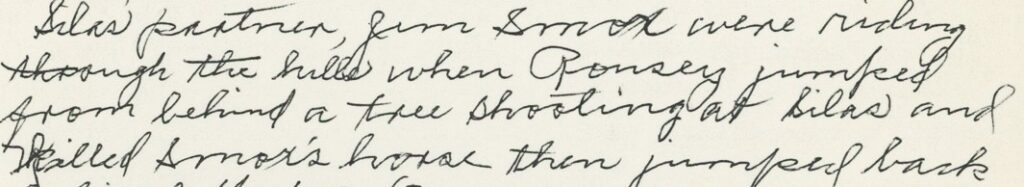 Silas' partner, Jim Smox were riding
through the hills when Ronsey jumped
from behind a tree shooting at Silas and
killed Smox's horse then jumped back